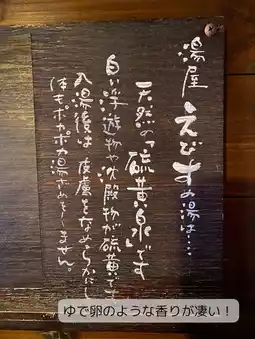 湯屋 えびすの湯は…
天然の「硫黄泉」です
白い浮遊物や沈殿物が硫黄です
入湯後は 皮膚をなめらかにし
体もポカポカ湯ざめをしません。
ゆで卵のような香りが凄い！